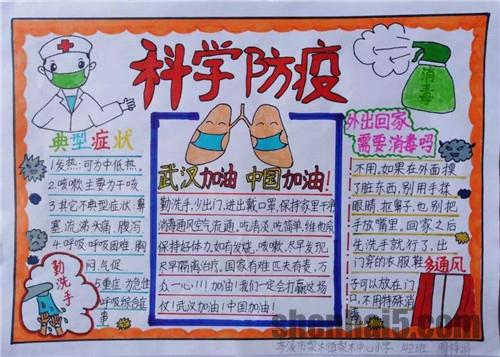 科学防疫
消毒
典型症状
1.发热:可为中低热。
2.咳嗽:主要为干咳.
3.其它不典型症状:鼻
塞.流涕.头痛.腹泻
4.呼吸:呼吸困难.胸
闷.气促
5.重症:为急性
呼吸综合症
勤洗手
武汉加油 中国加油!
勤洗手,少出门,进出戴口罩,保持家里干净
消毒通风空气流通,吃清淡,吃简单,维他命
保持好体力,如有发烧,咳嗽,尽早发现
尽早隔离治疗。国家有难匹夫有责,万
众一心!!!加油!我们一定会打赢这场
仗!武汉加油!中国加油!
外出回家
需要消毒吗
不用,如果在外面摸
了脏东西,别用手揉
眼睛,抠鼻子,也别把
手放嘴里。回家之后
先洗手就行了,出
门穿的衣服鞋
子可以放在门
口,不用特殊消
多通风
shenmei5.com